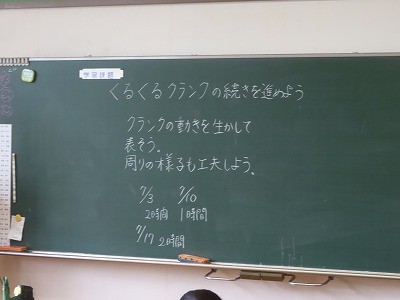 学習課題
くるくるクランクの続きを進めよう
クランクの動きを生かして
表そう。
周りの様子も工夫しよう。
7/3 7/10
2時間 1時間
7/17 2時間